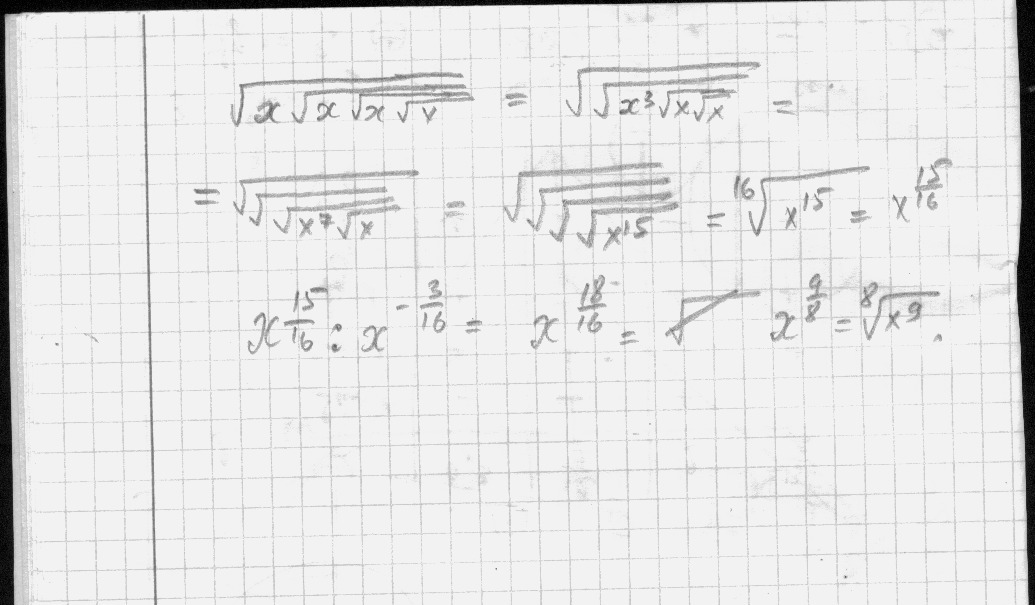 √(x√(x√(x√x))) = √(√(x³√(x√x))) =
= √(√(√(x⁷√x))) = √(√(√(√(x¹⁵)))) = ¹⁶√(x¹⁵) = x^(15/16)
x^(15/16) : x^(-3/16) = x^(18/16) = √ x^(9/8) = ⁸√(x⁹).